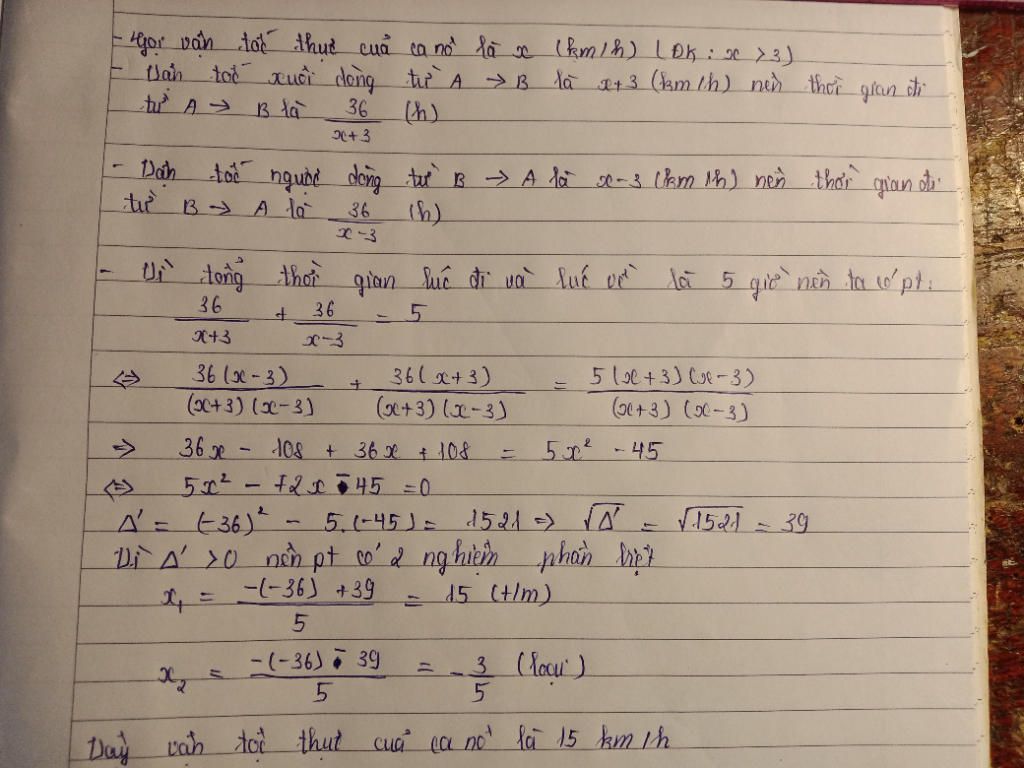 - Gọi vận tốc thực của ca nô là x (km/h) (ĐK: x > 3)
- Vận tốc xuôi dòng từ A → B là x+3 (km/h) nên thời gian đi
từ A → B là 36/(x+3) (h)
- Vận tốc ngược dòng từ B → A là x-3 (km/h) nên thời gian đi
từ B → A là 36/(x-3) (h)
- Vì tổng thời gian lúc đi và lúc về là 5 giờ nên ta có pt:
36/(x+3) + 36/(x-3) = 5
⇔ 36(x-3)/((x+3)(x-3)) + 36(x+3)/((x+3)(x-3)) = 5(x+3)(x-3)/((x+3)(x-3))
⇒ 36x - 108 + 36x + 108 = 5x² - 45
⇔ 5x² - 72x - 45 = 0
Δ' = (-36)² - 5.(-45) = 1521 ⇒ √Δ' = √1521 = 39
Vì Δ' > 0 nên pt có 2 nghiệm phân biệt
x₁ = (-(-36) + 39)/5 = 15 (t/m)
x₂ = (-(-36) - 39)/5 = -3/5 (loại)
Vậy vận tốc thực của ca nô là 15 km/h